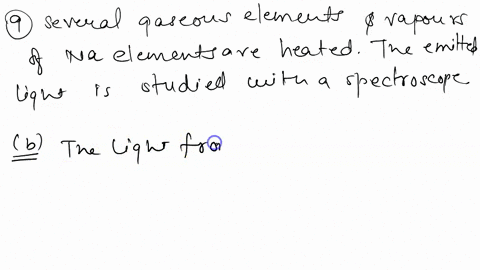 9 Several gaseous elements & vapours
of Na elements are heated. The emitted
light is studied with a spectroscope
(b) The light from